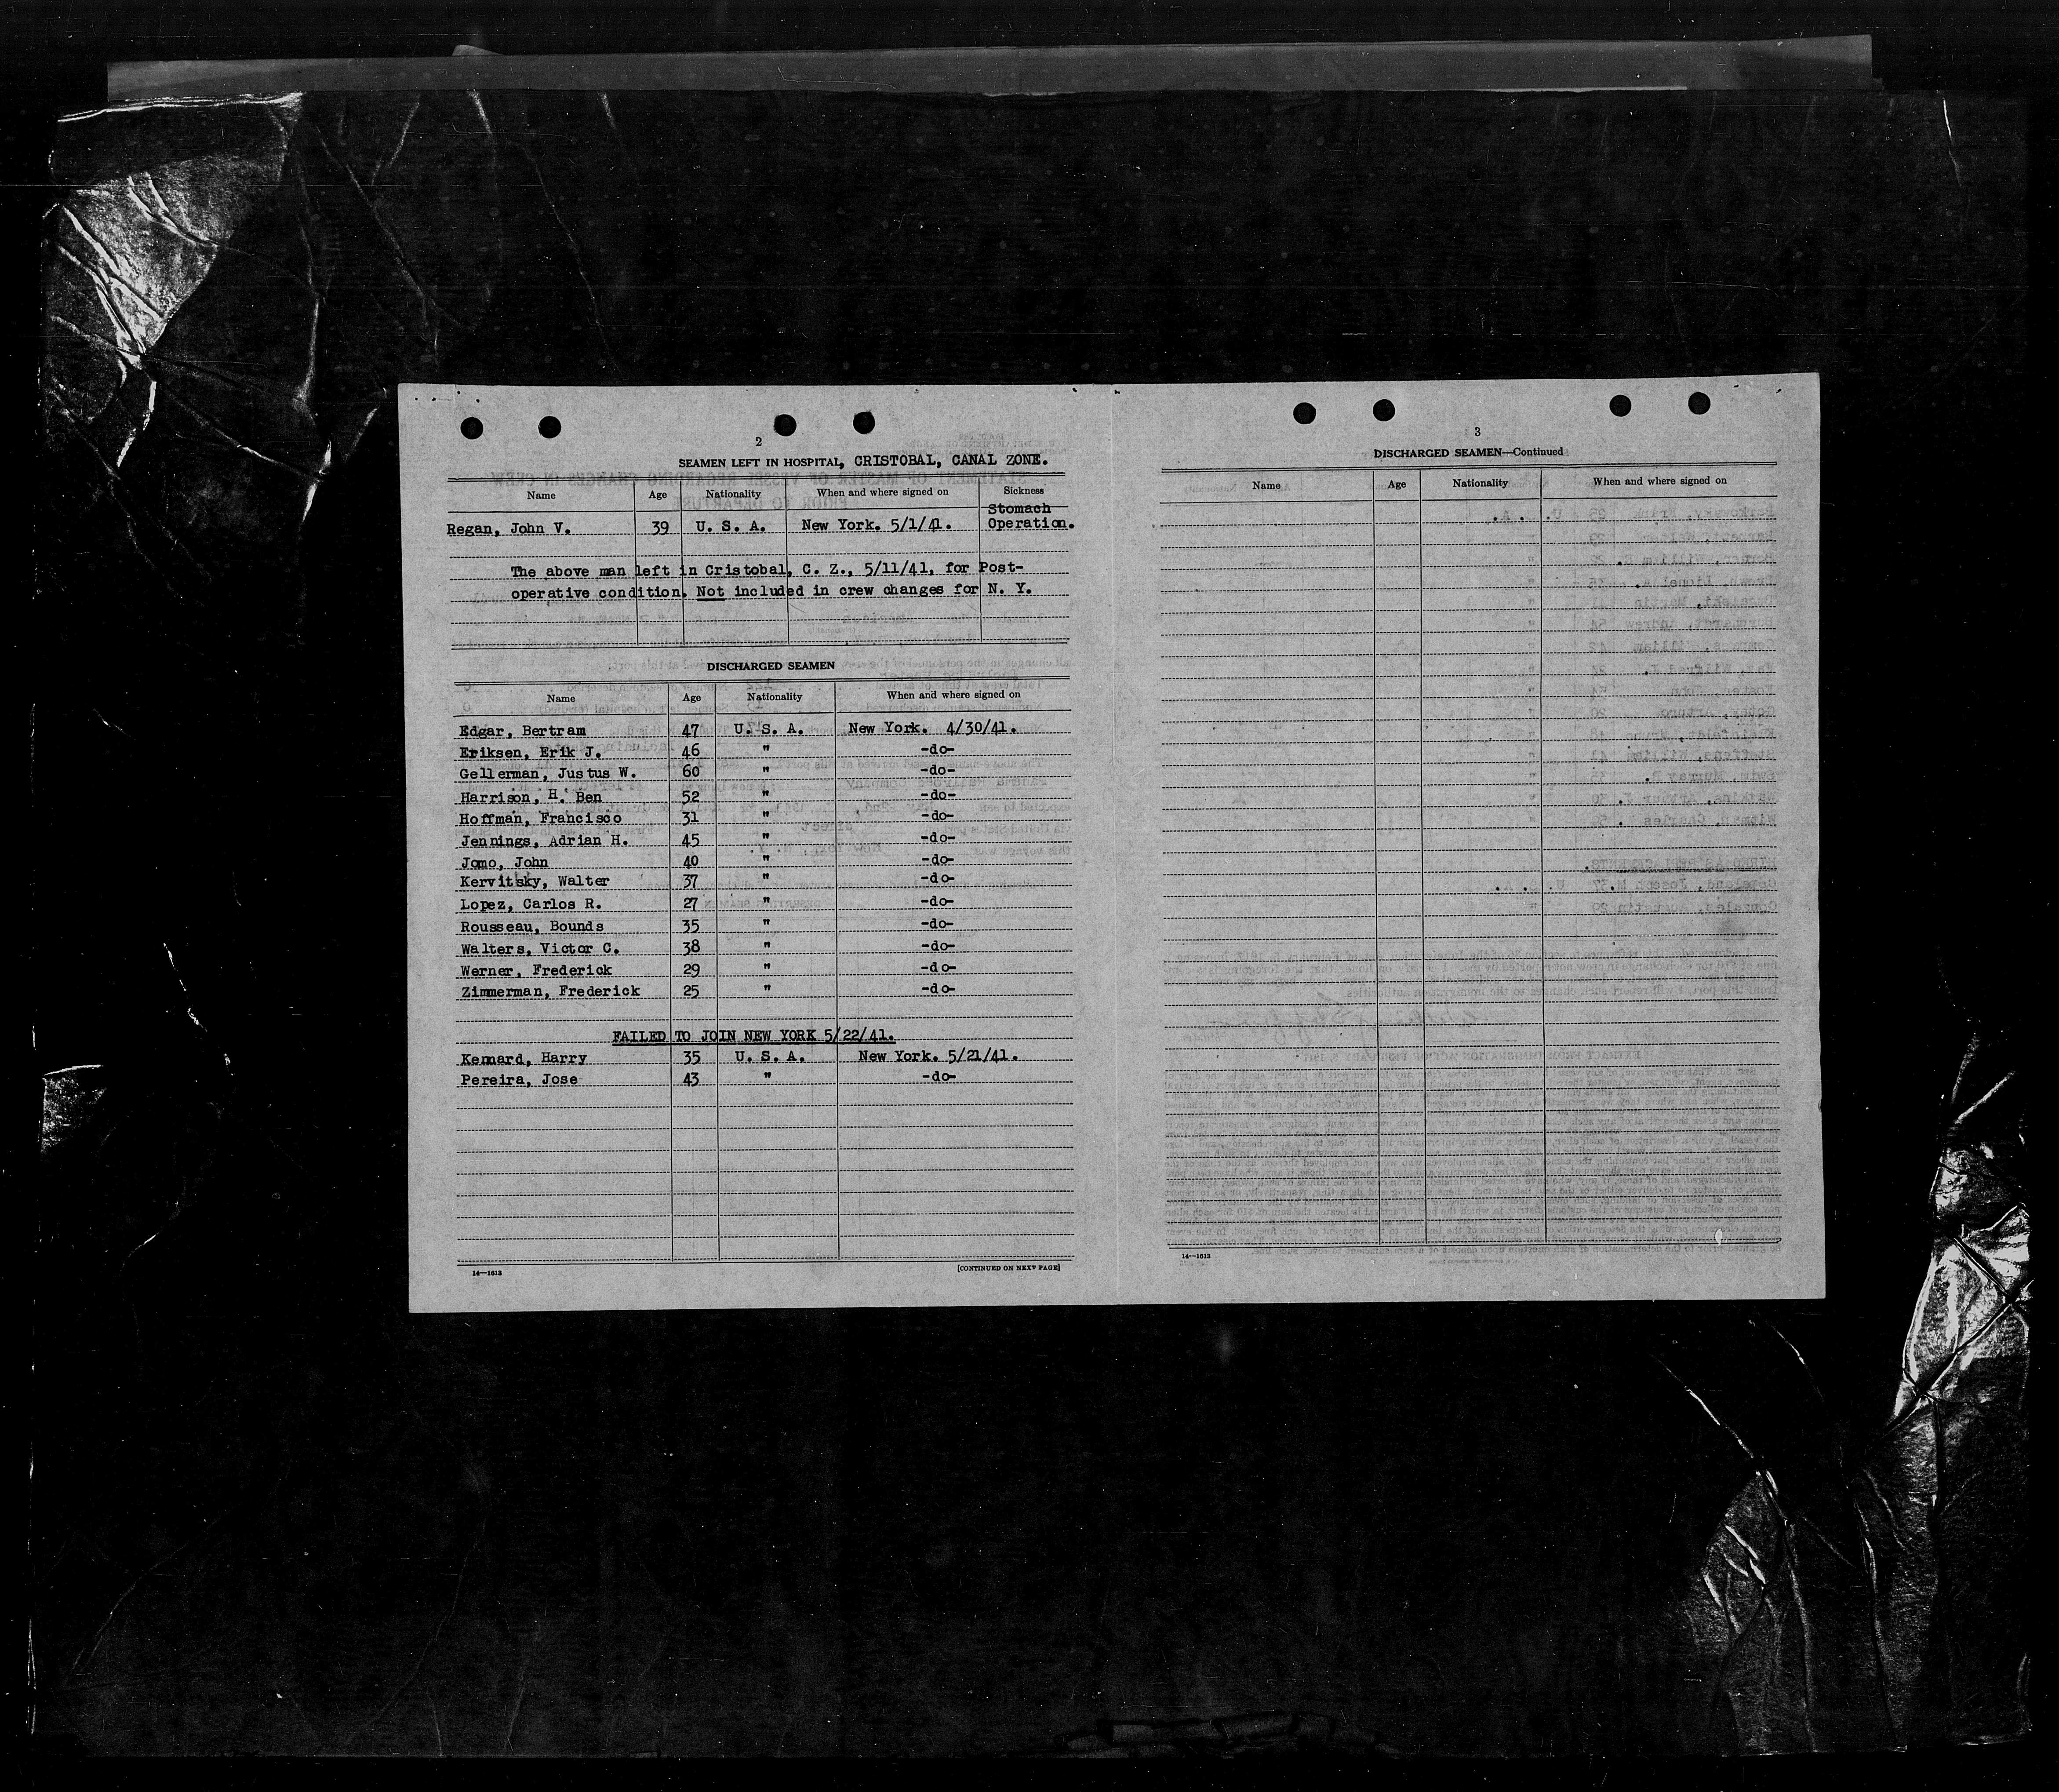 2
SEAMEN LEFT IN HOSPITAL, CRISTOBAL, CANAL ZONE.
Name Age Nationality When and where signed on Sickness
Stomach
Regan, John V. 39 U. S. A. New York. 5/1/41. Operation.
The above man left in Cristobal, C. Z., 5/11/41, for Post-
operative condition. Not included in crew changes for N. Y.
DISCHARGED SEAMEN
Name Age Nationality When and where signed on
Edgar, Bertram 47 U. S. A. New York. 4/30/41.
Eriksen, Erik J. 46 " -do-
Gellerman, Justus W. 60 " -do-
Harrison, H. Ben 52 " -do-
Hoffman, Francisco 31 " -do-
Jennings, Adrian H. 45 " -do-
Jomo, John 40 " -do-
Kervitsky, Walter 37 " -do-
Lopez, Carlos R. 27 " -do-
Rousseau, Bounds 35 " -do-
Walters, Victor C. 38 " -do-
Werner, Frederick 29 " -do-
Zimmerman, Frederick 25 " -do-
FAILED TO JOIN NEW YORK 5/22/41.
Kennard, Harry 35 U. S. A. New York. 5/21/41.
Pereira, Jose 43 " -do-
14—1613 [CONTINUED ON NEXT PAGE]
3
DISCHARGED SEAMEN—Continued
Name Age Nationality When and where signed on
14—1613